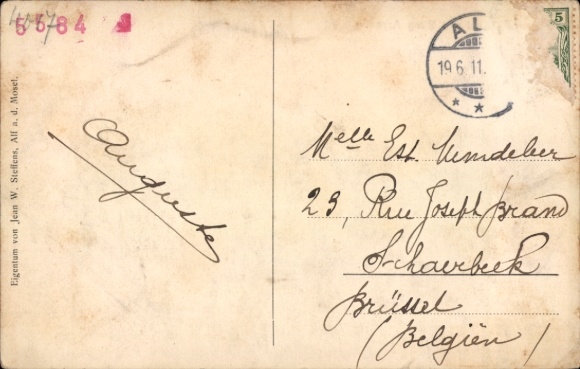 5584
Eigentum von Jean W. Steffens, Alf a. d. Mosel.
Auguste
AL
19.6.11.
5
Melle Est.
23, Rue Joseph Brand
Schaerbeek
Brüssel
(Belgiën)